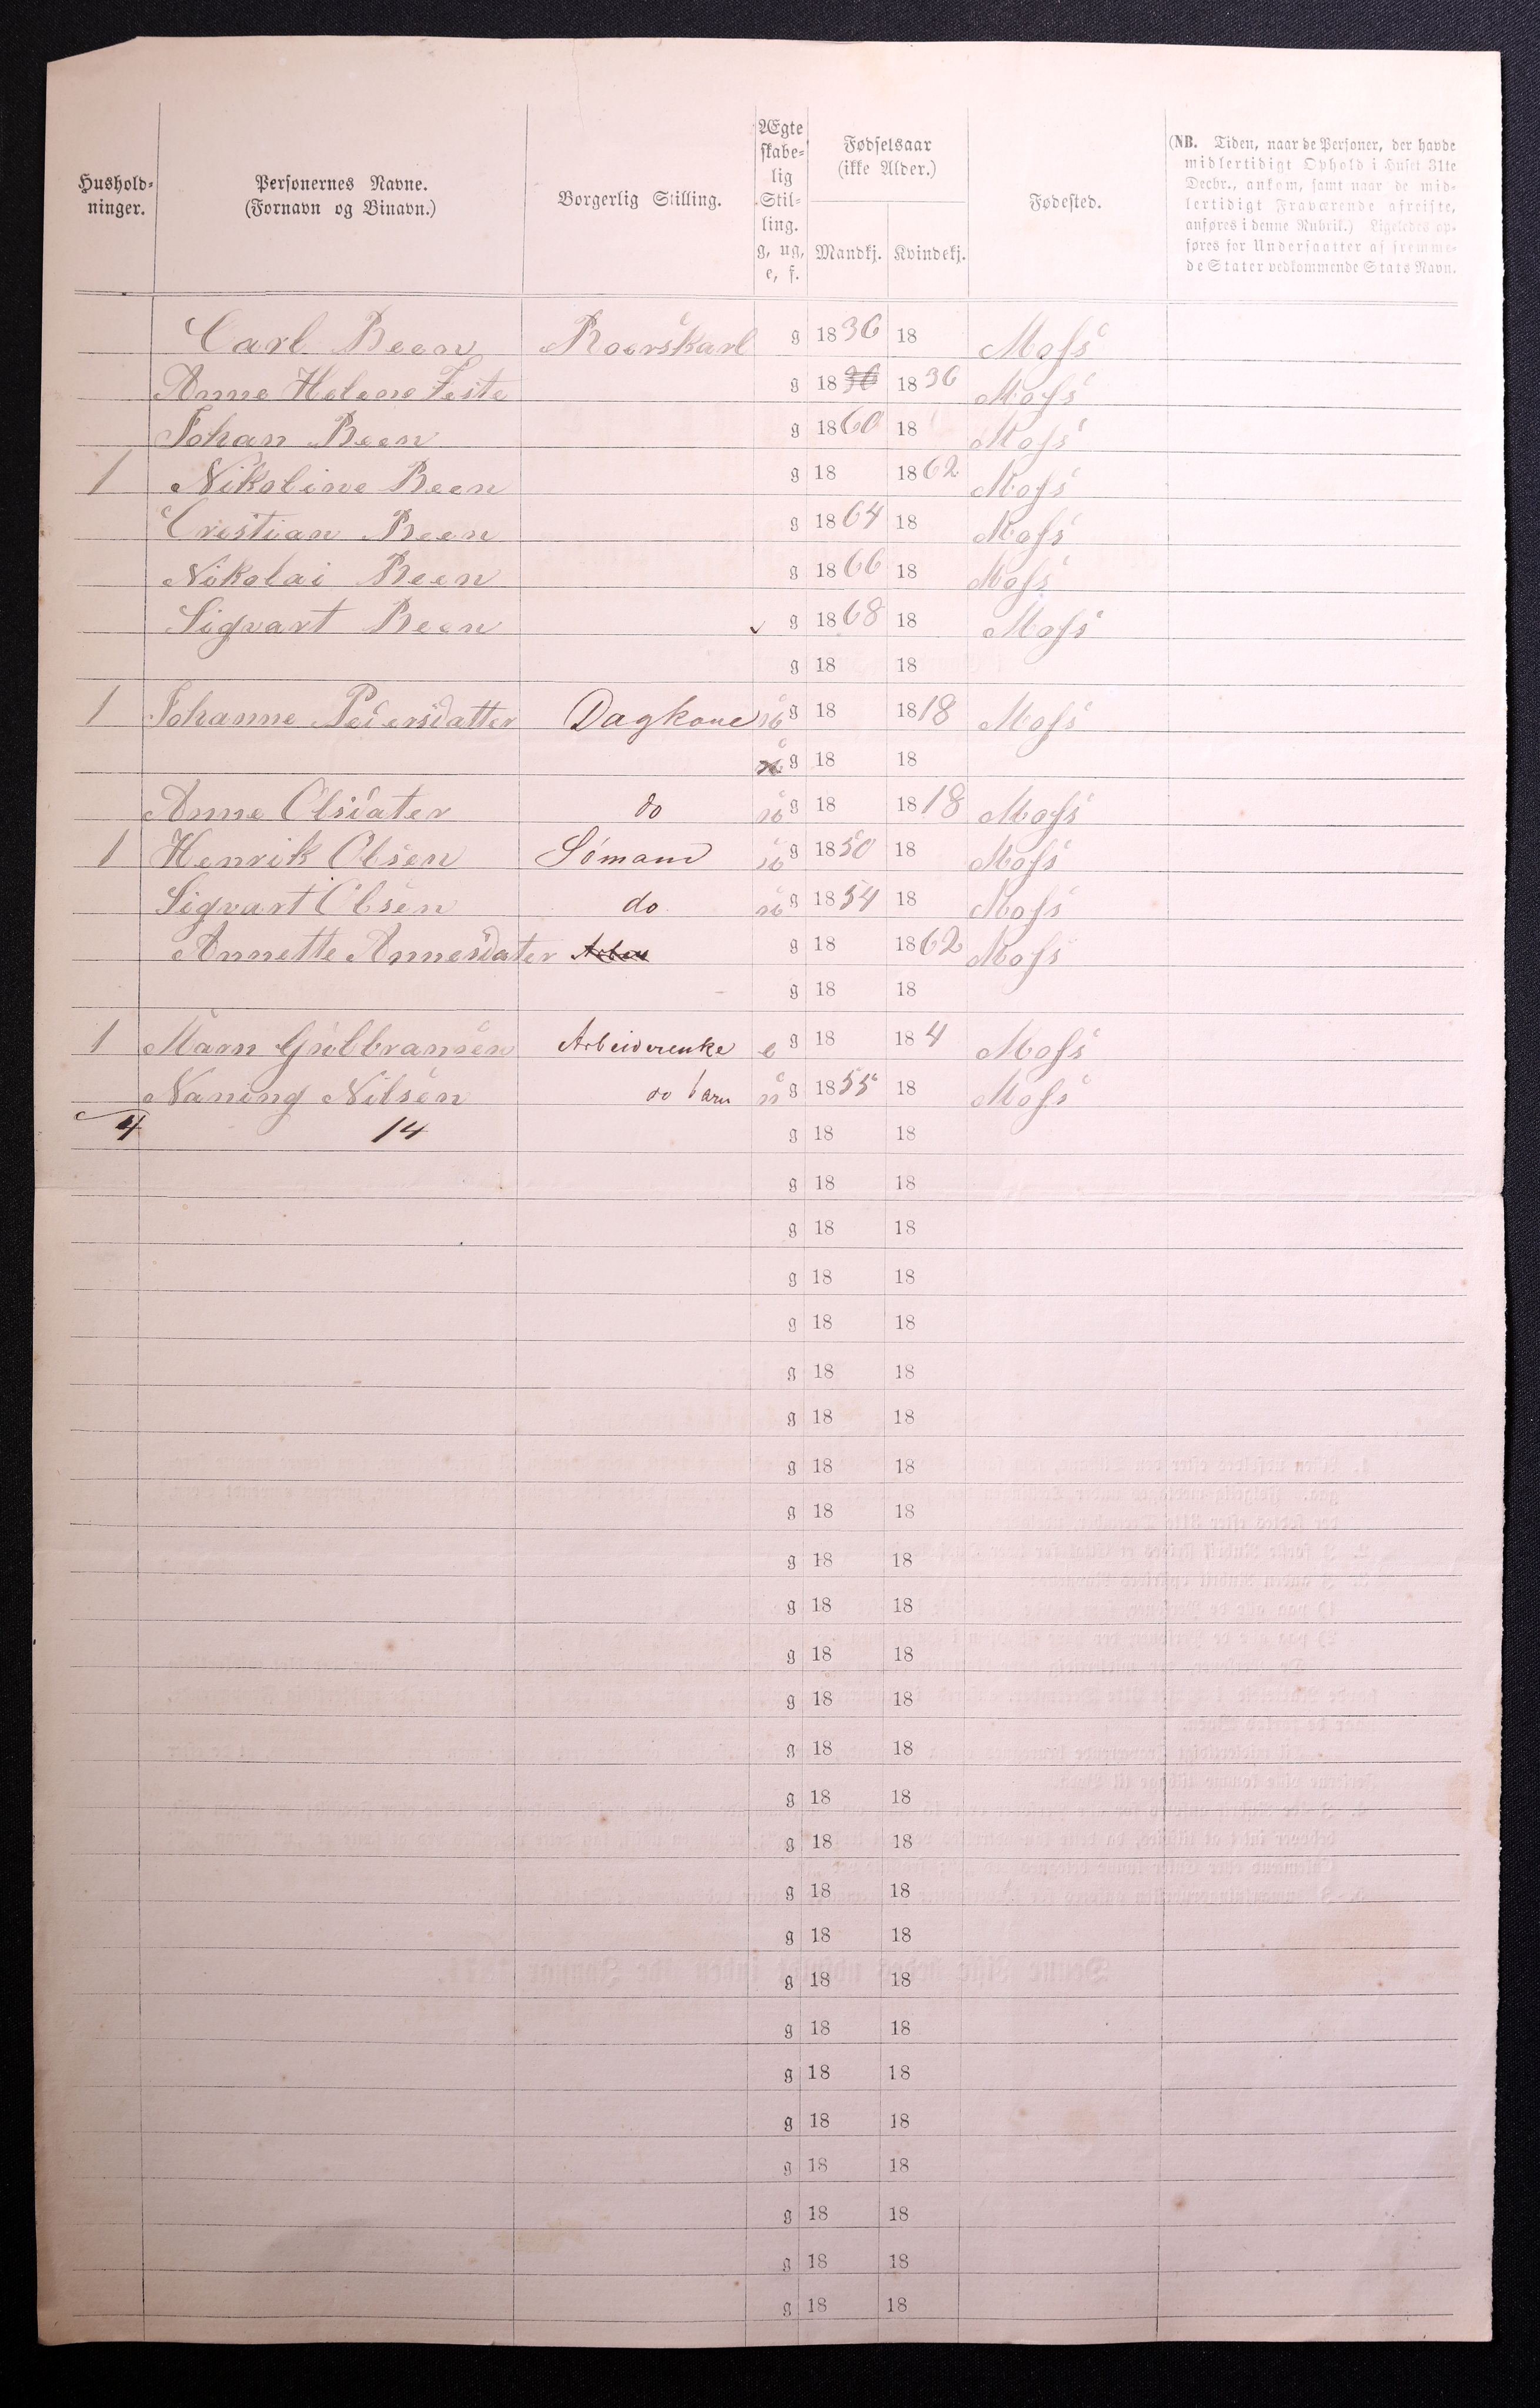 Hushold-
ninger.
Personernes Navne.
(Fornavn og Binavn.)
Borgerlig Stilling.
Ægte
skabe-
lig
Stil-
ling.
g, ug,
e, f.
Fødselsaar
(ikke Alder.)
Mandkj. Kvindekj.
Fødested.
(NB. Tiden, naar de Personer, der havde
midlertidigt Ophold i Huset 31te
Decbr., ankom, samt naar de mid-
lertidigt Fraværende afreiste,
anføres i denne Rubrik.) Ligeledes op-
føres for Undersaatter af fremme-
de Stater vedkommende Stats Navn.
Carl Been Roerskarl g 1836 18 Moss
Anne Helene Feste g 1836 1836 Moss
Johan Been g 1860 18 Moss
1 Nikoline Been g 18 1862 Moss
Cristian Been g 1864 18 Moss
Nikolai Been g 1866 18 Moss
Sigvart Been g 1868 18 Moss
g 18 18
1 Johanne Pedersdatter Dagkone ug 18 1818 Moss
g 18 18
Anne Olsdater do ug 18 1818 Moss
1 Henrik Olsen Sømand ug 1850 18 Moss
Sigvart Olsen do ug 1854 18 Moss
Annette Annesdater g 18 1862 Moss
g 18 18
1 Marn Gulbransen Arbeiderenke e g 18 184 Moss
Naning Nilsen do barn ug 1855 18 Moss
4 14 g 18 18
g 18 18
g 18 18
g 18 18
g 18 18
g 18 18
g 18 18
g 18 18
g 18 18
g 18 18
g 18 18
g 18 18
g 18 18
g 18 18
g 18 18
g 18 18
g 18 18
g 18 18
g 18 18
g 18 18
g 18 18
g 18 18
g 18 18
g 18 18
g 18 18
g 18 18